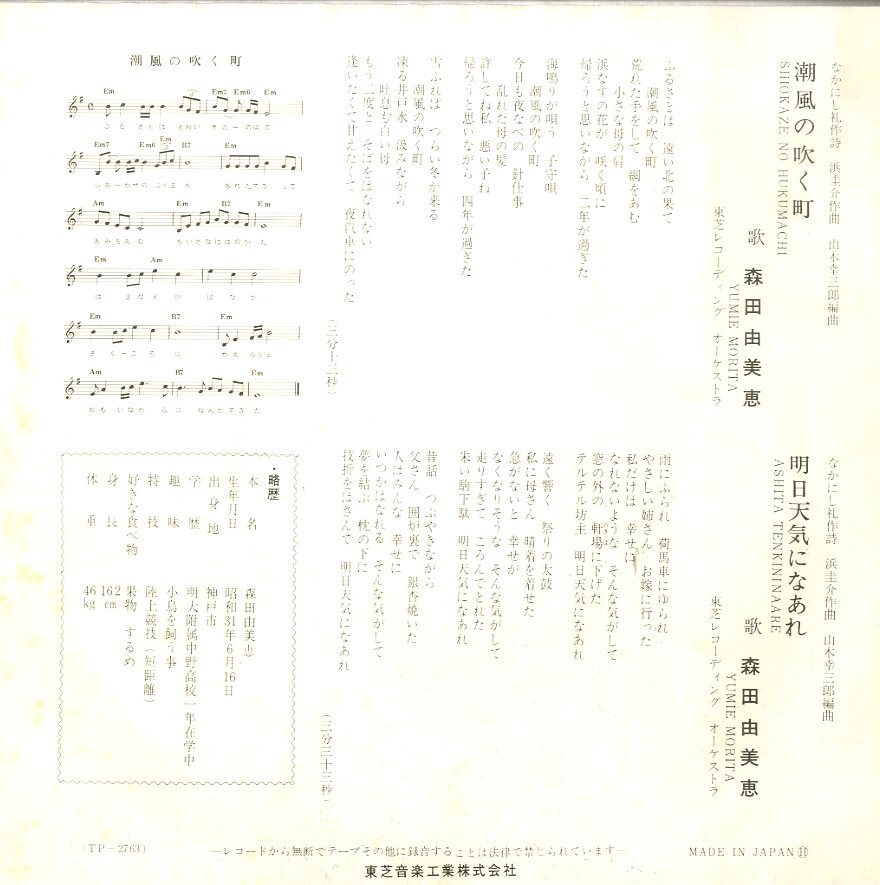 なかにし礼作詩　浜圭介作曲　山木幸三郎編曲
潮風の吹く町
SHIOKAZE NO HUKUMACHI
歌　森田由美恵
YUMIE MORITA
東芝レコーディング　オーケストラ
ふるさとは　遠い北の果て
潮風の吹く町
荒れた手をして　網をあむ
小さな母の肩
浜なすの花が　咲く頃に
帰ろうと思いながら　二年が過ぎた
海鳴りが唄う　子守唄
潮風の吹く町
今日も夜なべの　針仕事
乱れた母の髪
許してね私　悪い子ね
帰ろうと思いながら　四年が過ぎた
雪ふれば　つらい冬が来る
潮風の吹く町
凍る井戸水　汲みながら
吐息も白い母
もう二度と　そばをはなれない
逢いたくて甘えたくて　夜汽車にのった
(三分十三秒)
潮風の吹く町
Em Em7 Em6 Em
ふるさとは とおい きたーのはて
Em7 Em6 Em B7 Em
しおーかぜの ふくまち あれたてをして
Am Em Am Em
あみをあむ ちいさなははのかた
Em Am
はまなすの はなが
Em B7 Em
さくーころに かえろうと
Am B7 Em
おもいながらに ねんがすぎた
なかにし礼作詩　浜圭介作曲　山木幸三郎編曲
明日天気になあれ
ASHITA TENKININAARE
歌　森田由美恵
YUMIE MORITA
東芝レコーディング　オーケストラ
雨にふられ　荷馬車にゆられ
やさしい姉さん　お嫁に行った
私だけは　幸せに
なれないような　そんな気がして
窓の外の　軒場に下げた
テルテル坊主　明日天気になあれ
遠く響く　祭りの太鼓
私に母さん　晴着を着せた
急がないと　幸せが
なくなりそうな　そんな気がして
走りすぎて　ころんでとれた
朱い駒下駄　明日天気になあれ
昔話　つぶやきながら
父さん　囲炉裏で　銀杏焼いた
人はみんな　幸せに
いつかはなれる　そんな気がして
夢を結ぶ　枕の下に
技折をはさんで　明日天気になあれ
(三分三十三秒)
・略歴
本名　森田由美恵
生年月日　昭和31年6月16日
出身地　神戸市
学歴　明大附属中野高校一年在学中
趣味　小鳥を飼う事
特技　陸上競技（短距離）
好きな食べ物　果物　するめ
身長　162cm
体重　46kg
(TP-2763)
―レコードから無断でテープその他に録音することは法律で禁じられています―
MADE IN JAPAN Ⓗ
東芝音楽工業株式会社